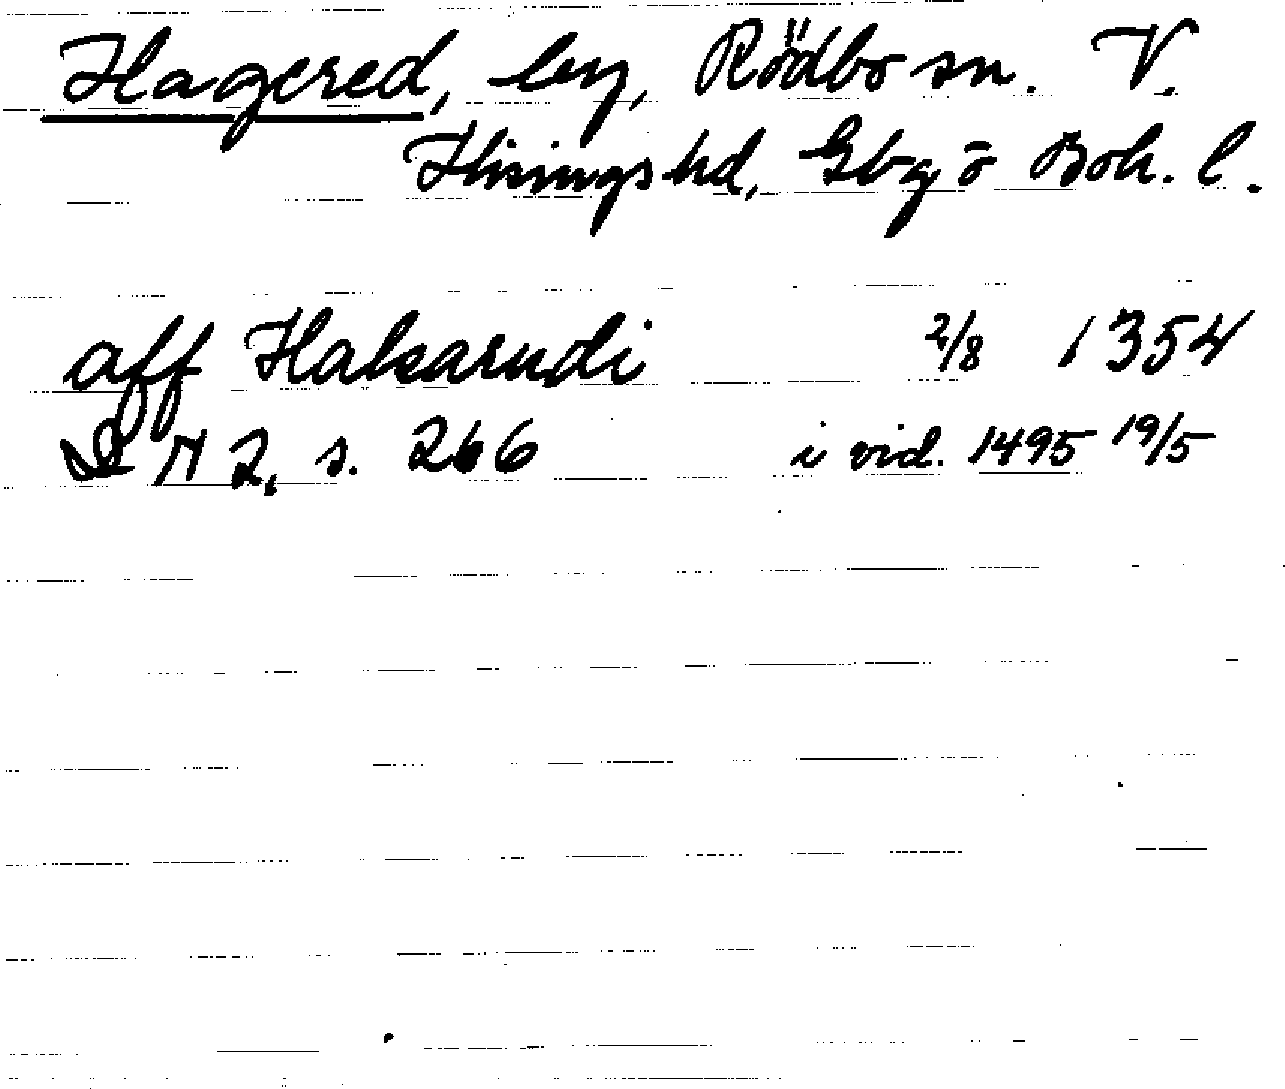 Hagered, by, Rödbo sn. V.
Hisings hd, Gbg o Boh. l.
aff Hakarudi 2/8 1354
DN 2, s. 266 i vid. 1495 19/5